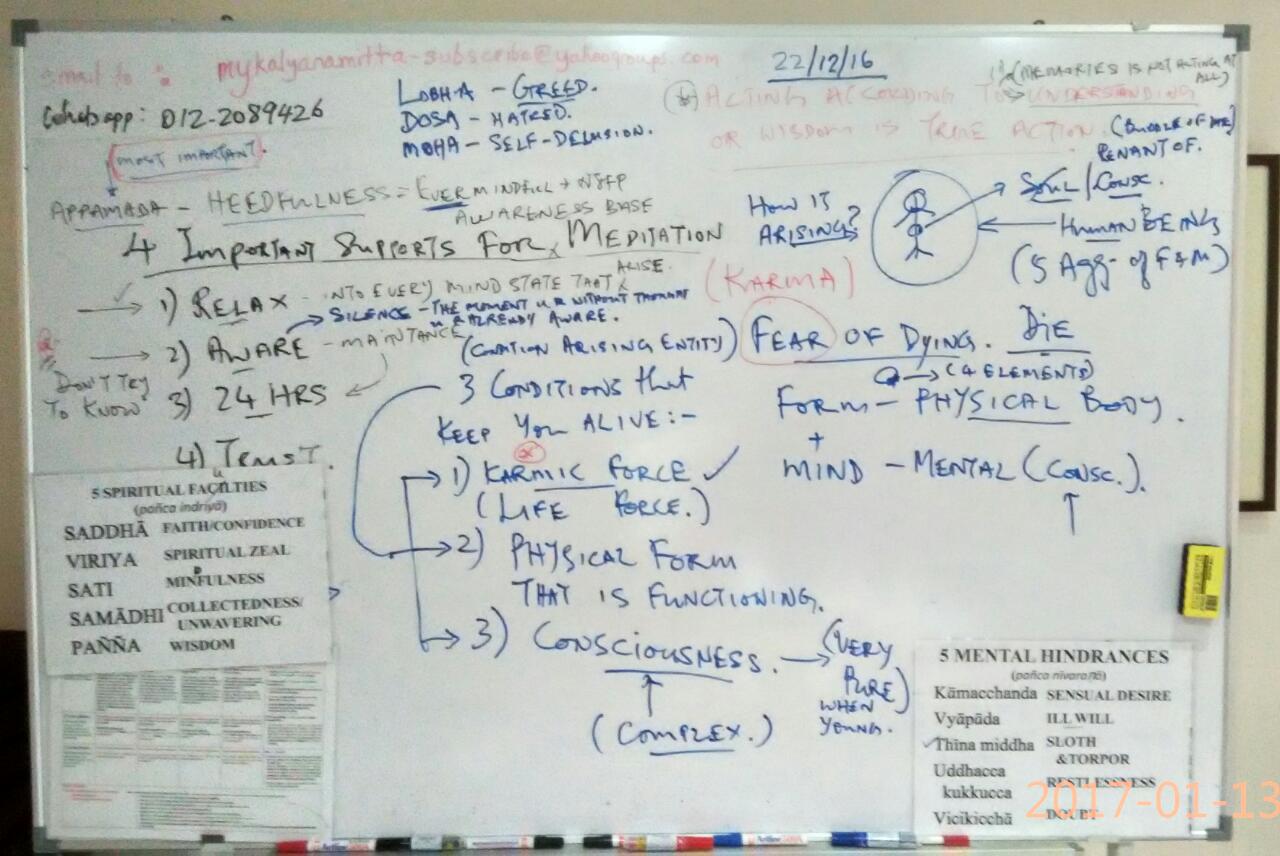 email to : mykalyanamitta-subscribe@yahoogroups.com
Whatsapp: 012-2089426
MOST IMPORTANT.
LOBHA - GREED.
DOSA - HATRED.
MOHA - SELF-DELUSION.
22/12/16
(MEMORIES IS NOT ACTING AT ALL)
ACTING ACCORDING TO UNDERSTANDING
OR WISDOM IS TRUE ACTION.
(BUNDLE OF
PENANT OF.
APPAMADA - HEEDFULNESS = EVER MINDFUL +
AWARENESS BASE
4 IMPORTANT SUPPORTS FOR MEDITATION
1) RELAX - INTO EVERY MIND STATE THAT ARISE.
SILENCE - THE MOMENT U R WITHOUT THOUGHT
U R ALREADY AWARE.
2) AWARE - MAINTANCE
DON'T TRY
TO KNOW
3) 24 HRS
4) TRUST.
HOW IS
ARISING?
SOUL/CONSC.
HUMAN BEING
(5 Agg. of F & M)
(KARMA)
(CONATION ARISING ENTITY)
FEAR OF DYING. DIE
(4 ELEMENTS)
FORM - PHYSICAL BODY.
+
MIND - MENTAL (CONSC.).
3 CONDITIONS that
KEEP YOU ALIVE:-
1) KARMIC FORCE ✓
(LIFE FORCE.)
2) PHYSICAL FORM
THAT IS FUNCTIONING.
3) CONSCIOUSNESS.
(VERY
PURE)
WHEN
YOUNG.
(COMPLEX.)
5 SPIRITUAL FAÇILTIES
(pañca indriya)
SADDHĀ FAITH/CONFIDENCE
VIRIYA SPIRITUAL ZEAL
SATI MINFULNESS
SAMĀDHI COLLECTEDNESS/
UNWAVERING
PAÑÑA WISDOM
5 MENTAL HINDRANCES
(pañca nīvaraṇā)
Kāmacchanda SENSUAL DESIRE
Vyāpāda ILL WILL
Thīna middha SLOTH
&TORPOR
Uddhacca
kukkucca RESTLESSNESS
Vicikicchā DOUBT
2017-01-13